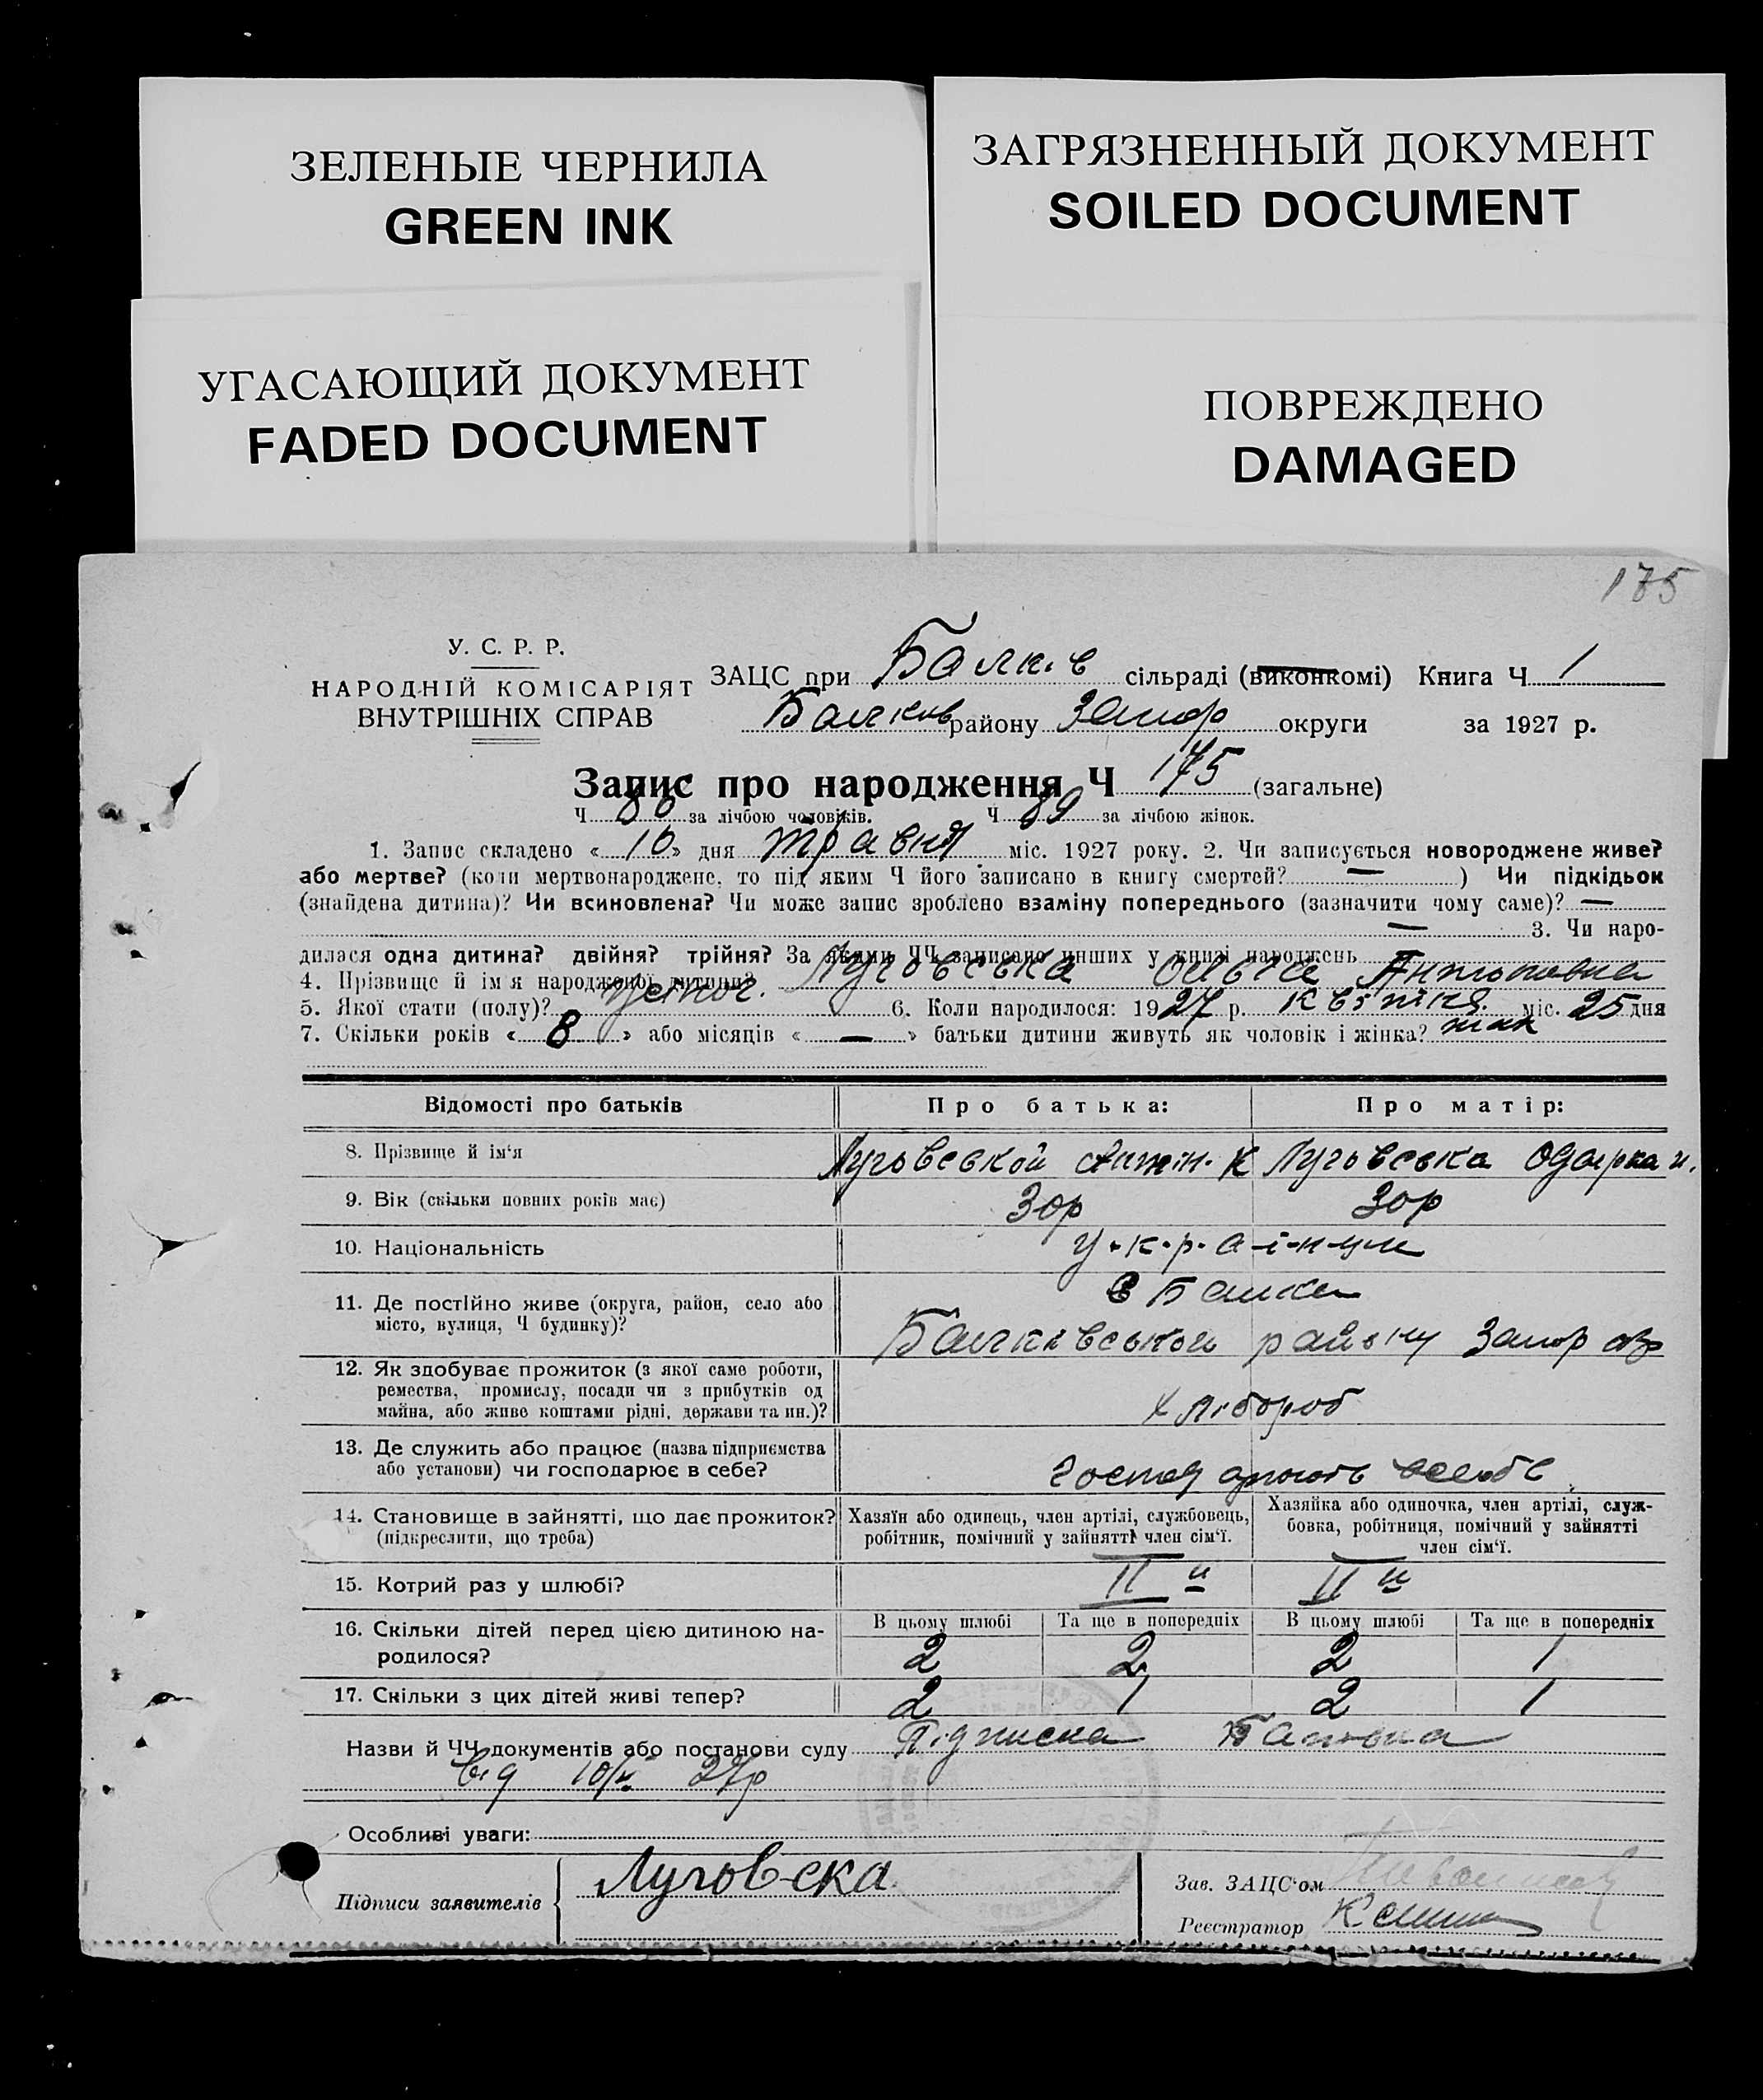 ЗЕЛЕНЫЕ ЧЕРНИЛА
GREEN INK
ЗАГРЯЗНЕННЫЙ ДОКУМЕНТ
SOILED DOCUMENT
УГАСАЮЩИЙ ДОКУМЕНТ
FADED DOCUMENT
ПОВРЕЖДЕНО
DAMAGED
175
У. С. Р. Р.
НАРОДНІЙ КОМІСАРІЯТ
ВНУТРІШНІХ СПРАВ
ЗАЦС при Балків сільраді (виконкомі) Книга Ч 1
Балков району Запор округи за 1927 р.
Запис про народження Ч 175 (загальне)
Ч 86 за лічбою чоловіків. Ч 89 за лічбою жінок.
1. Запис складено « 10 » дня травня міс. 1927 року. 2. Чи записується новороджене живе?
або мертве? (коли мертвонароджене, то під яким Ч його записано в книгу смертей? — ) Чи підкідьок
(знайдена дитина)? Чи всиновлена? Чи може запис зроблено взаміну попереднього (зазначити чому саме)? —
— 3. Чи наро-
дилася одна дитина? двійня? трійня? За якими ЧЧ записано инших у книзі народжень
4. Прізвище й ім'я народженої дитини? Луговська Ольга Антоновна
5. Якої стати (полу)? жіноч. 6. Коли народилося: 1927 р. квітня міс. 25 дня
7. Скільки років « 8 » або місяців « — » батьки дитини живуть як чоловік і жінка? так
Відомості про батьків Про батька: Про матір:
8. Прізвище й ім'я Луговской Антін. К Луговська Одарка И.
9. Вік (скільки повних років має) 30р 30р
10. Національність у-к-р-а-ї-н-ци
11. Де постійно живе (округа, район, село або
місто, вулиця, Ч будинку)?
в Балки
Балківськой району Запор окр
12. Як здобуває прожиток (з якої саме роботи,
ремества, промислу, посади чи з прибутків од
майна, або живе коштами рідні, держави та ин.)?
хлібороб
13. Де служить або працює (назва підприємства
або установи) чи господарює в себе?
господарюють в себе
14. Становище в зайнятті, що дає прожиток?
(підкреслити, що треба)
Хазяїн або одинець, член артілі, службовець,
робітник, помічний у зайнятті член сім'ї.
Хазяйка або одиночка, член артілі, служ-
бовка, робітниця, помічний у зайнятті
член сім'ї.
15. Котрий раз у шлюбі? II й II й
В цьому шлюбі Та ще в попередніх В цьому шлюбі Та ще в попередніх
16. Скільки дітей перед цією дитиною на-
родилося?
2 2 2 1
17. Скільки з цих дітей живі тепер? 2 1 2 1
Назви й ЧЧ документів або постанови суду Підписка
від 10/V 27р
Особливі уваги:
Підписи заявителів Луговска
Зав. ЗАЦС'ом
Реєстратор